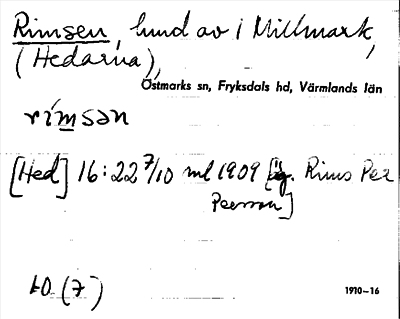 Rimsen, hmd av i Millmark,
(Hedarna),
Östmarks sn, Fryksdals hd, Värmlands län
rimsən
[Hed] 16:22 7/10 ml 1909 [äg. Rims Per
Persson]
LO (7)
1910-16